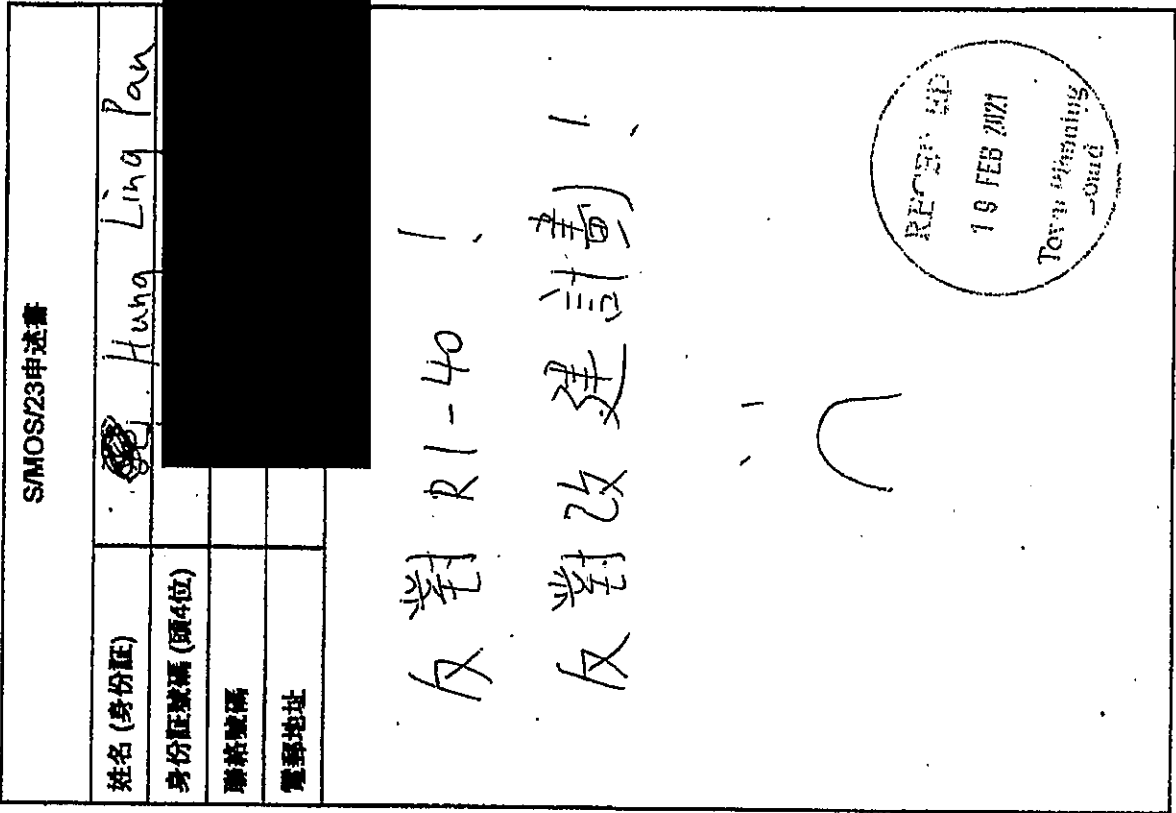 S/MOS/23申述書
姓名 (身份証) Hung Ling Pan
身份証號碼 (頭4位)
聯絡號碼
電郵地址
反對 R1-40 !
反對改建計劃 !
RECEIVED
19 FEB 2021
Town Planning
Board